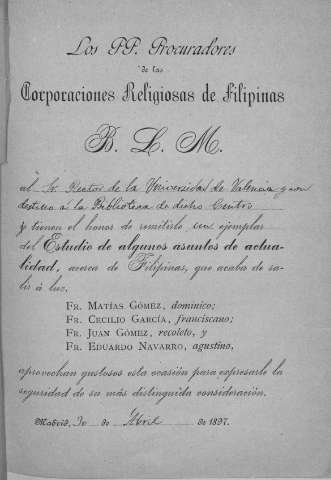 Los PP. Procuradores
de las
Corporaciones Religiosas de Filipinas
B. L. M.
al Sr. Rector de la Universidad de Valencia y con
destino á la Biblioteca de dicho Centro
y tienen el honor de remitirle un ejemplar
del Estudio de algunos asuntos de actua-
lidad, acerca de Filipinas, que acaba de sa-
lir á luz.
FR. MATÍAS GÓMEZ, dominico;
FR. CECILIO GARCÍA, franciscano;
FR. JUAN GÓMEZ, recoleto, y
FR. EDUARDO NAVARRO, agustino,
aprovechan gustosos esta ocasión para expresarle la
seguridad de su más distinguida consideración.
Madrid, 30 de Abril de 1897.